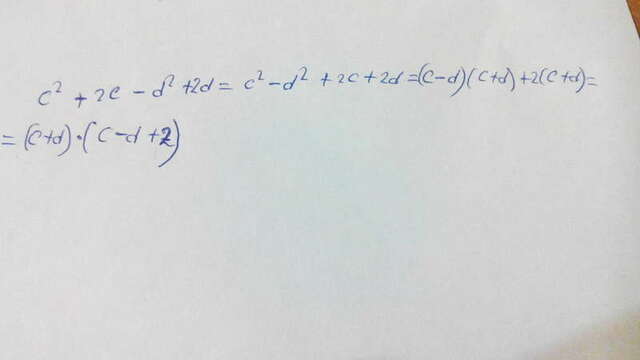 c² + 2c - d² + 2d = c² - d² + 2c + 2d = (c-d)(c+d) + 2(c+d) =
= (c+d)·(c-d+2)